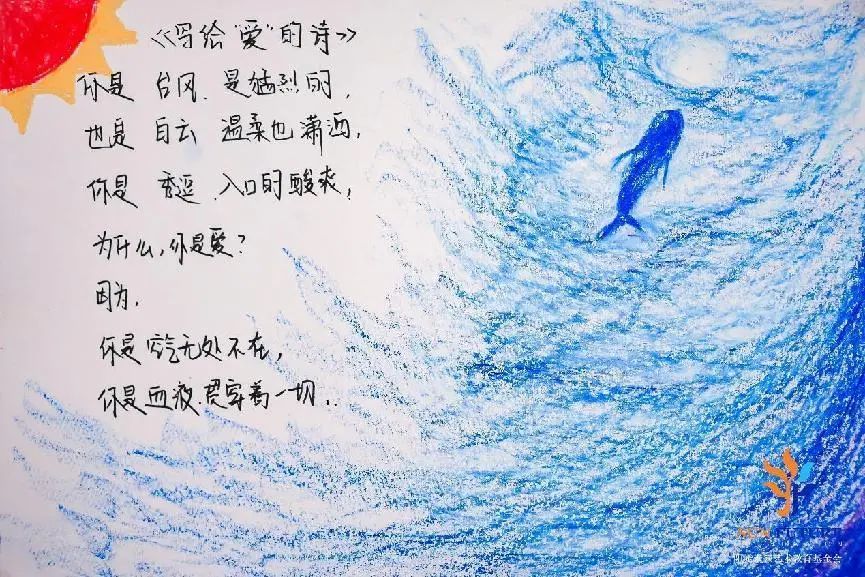 《写给"爱"的诗》
你是 台风、是猛烈的,
也是 白云 温柔也潇洒,
你是 秀逗、入口的酸爽,
为什么,你是爱?
因为,
你是空气无处不在,
你是血液、贯穿着一切..